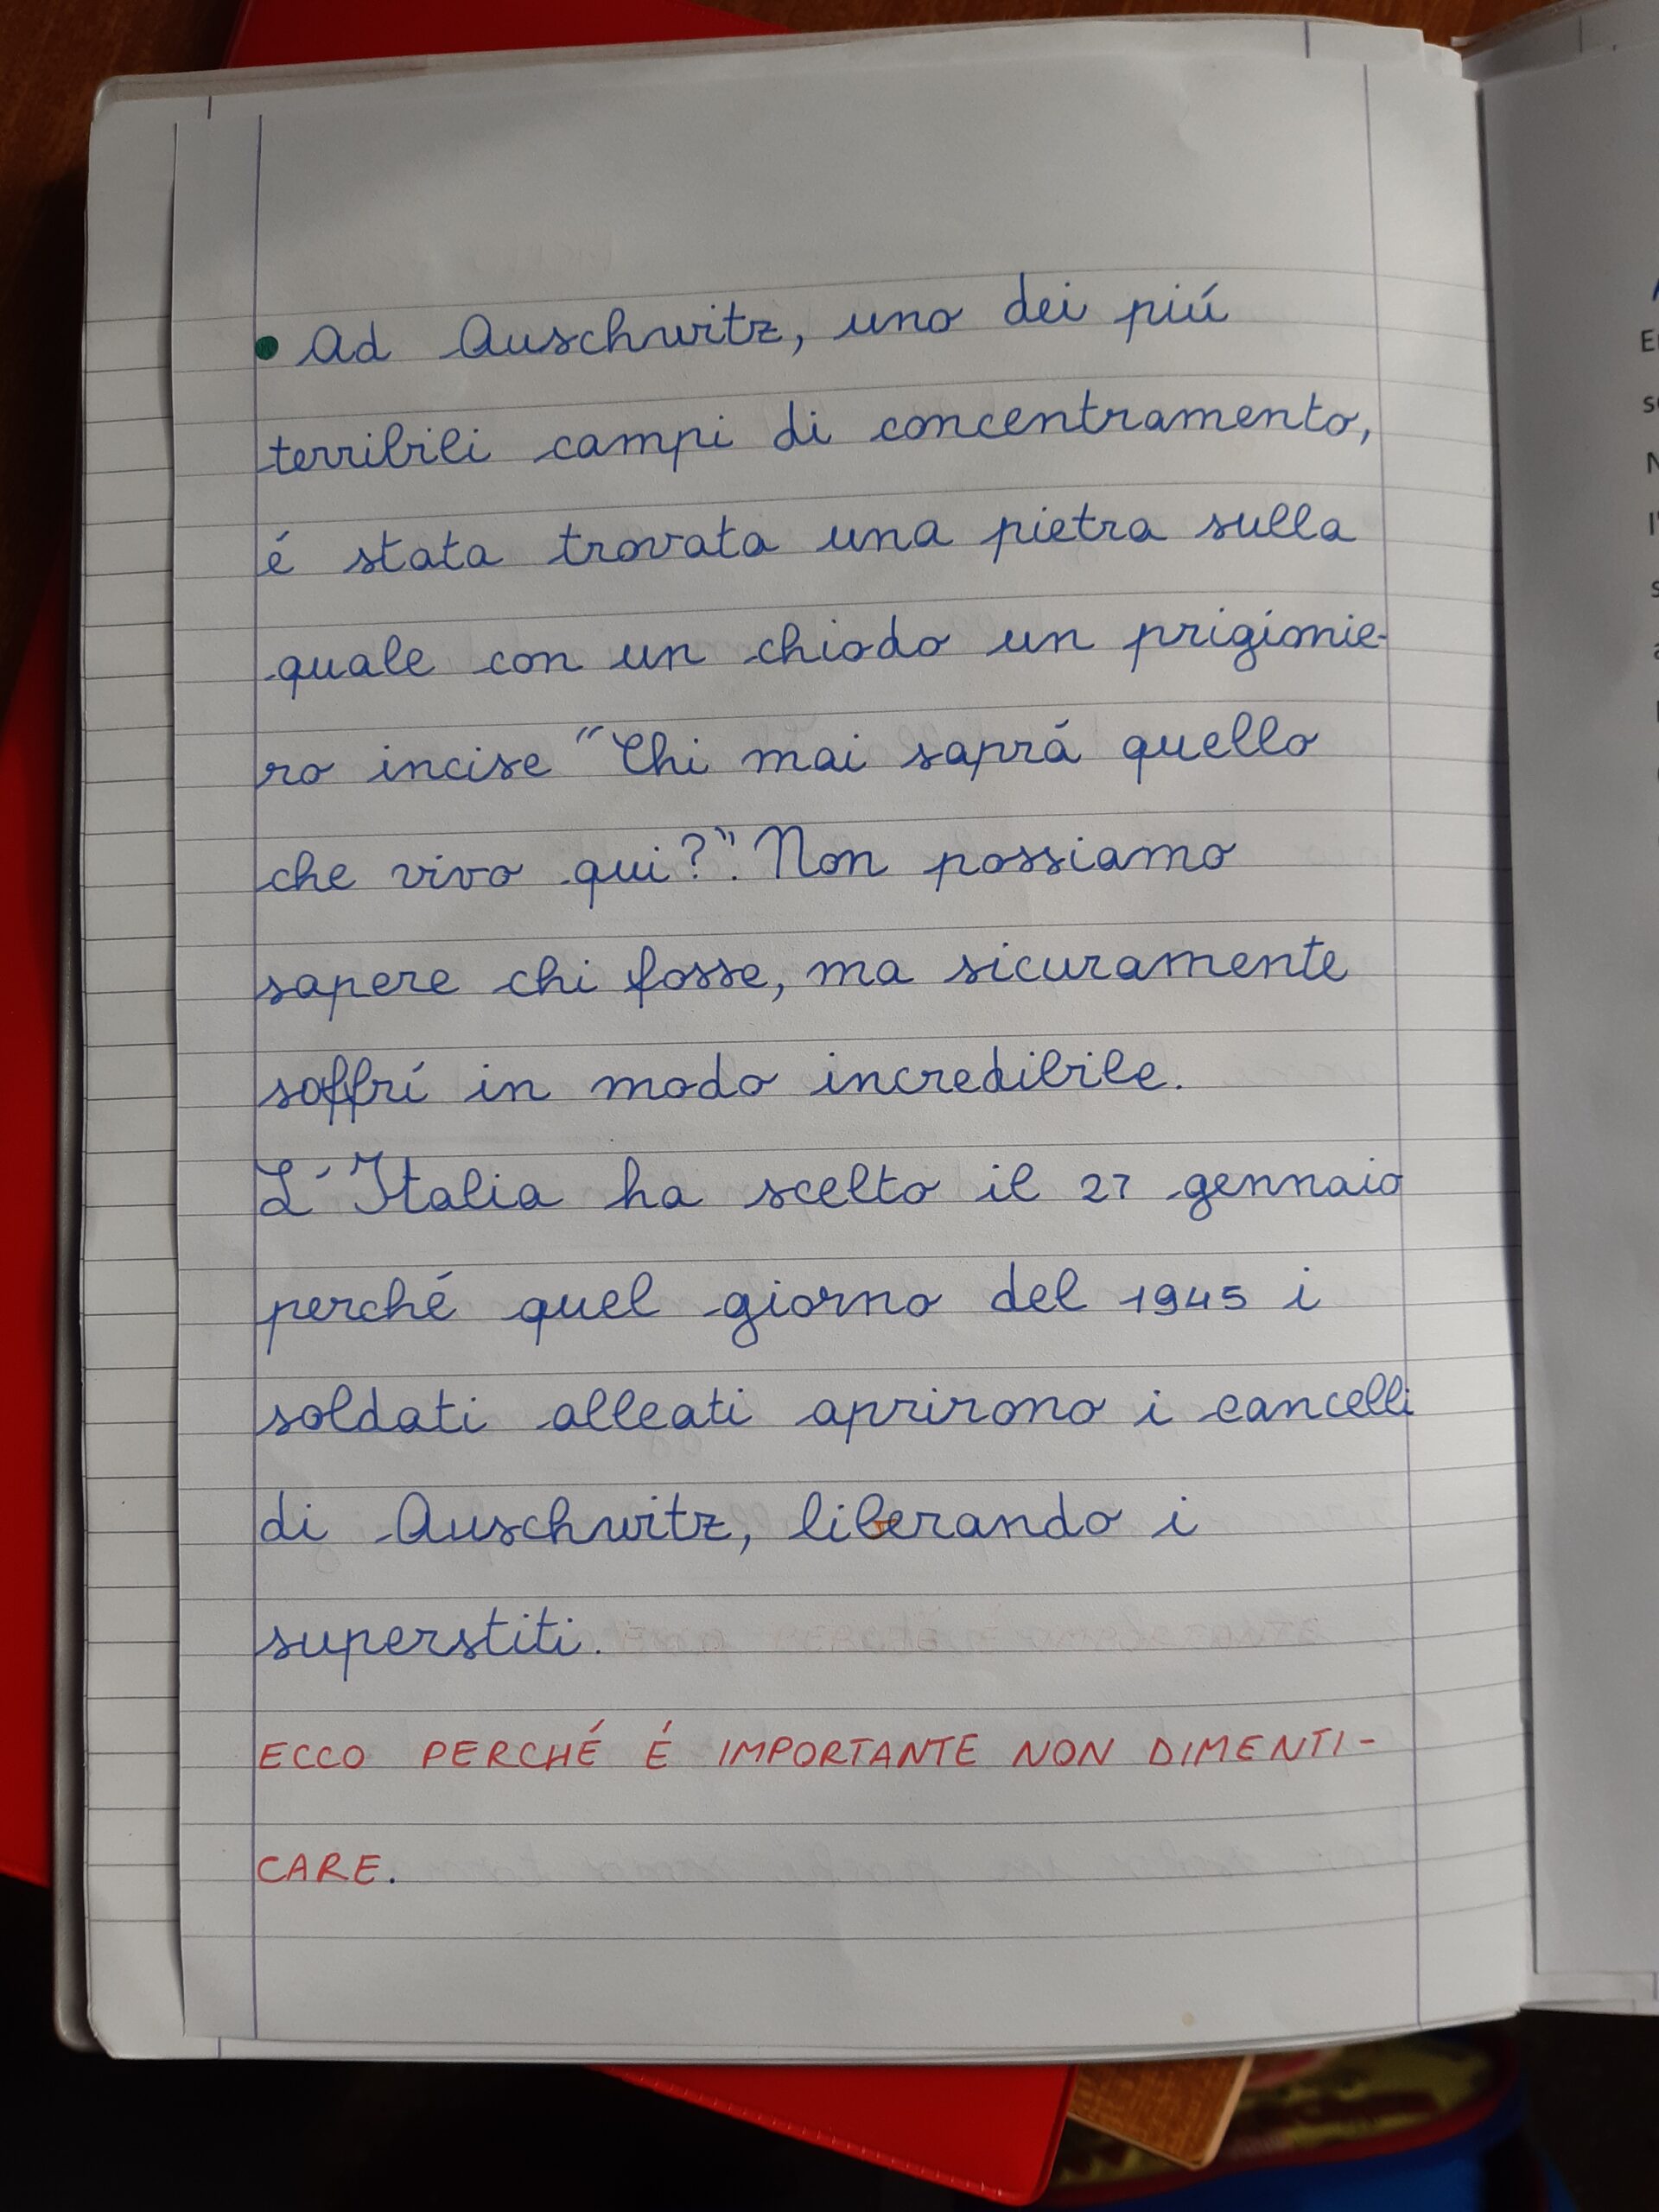 • Ad Auschwitz, uno dei piú
terribili campi di concentramento,
é stata trovata una pietra sulla
quale con un chiodo un prigionie-
ro incise "Chi mai saprá quello
che vivo qui?". Non possiamo
sapere chi fosse, ma sicuramente
soffrí in modo incredibile.
L'Italia ha scelto il 27 gennaio
perché quel giorno del 1945 i
soldati alleati aprirono i cancelli
di Auschwitz, liberando i
superstiti.
ECCO PERCHÉ É IMPORTANTE NON DIMENTI-
CARE.